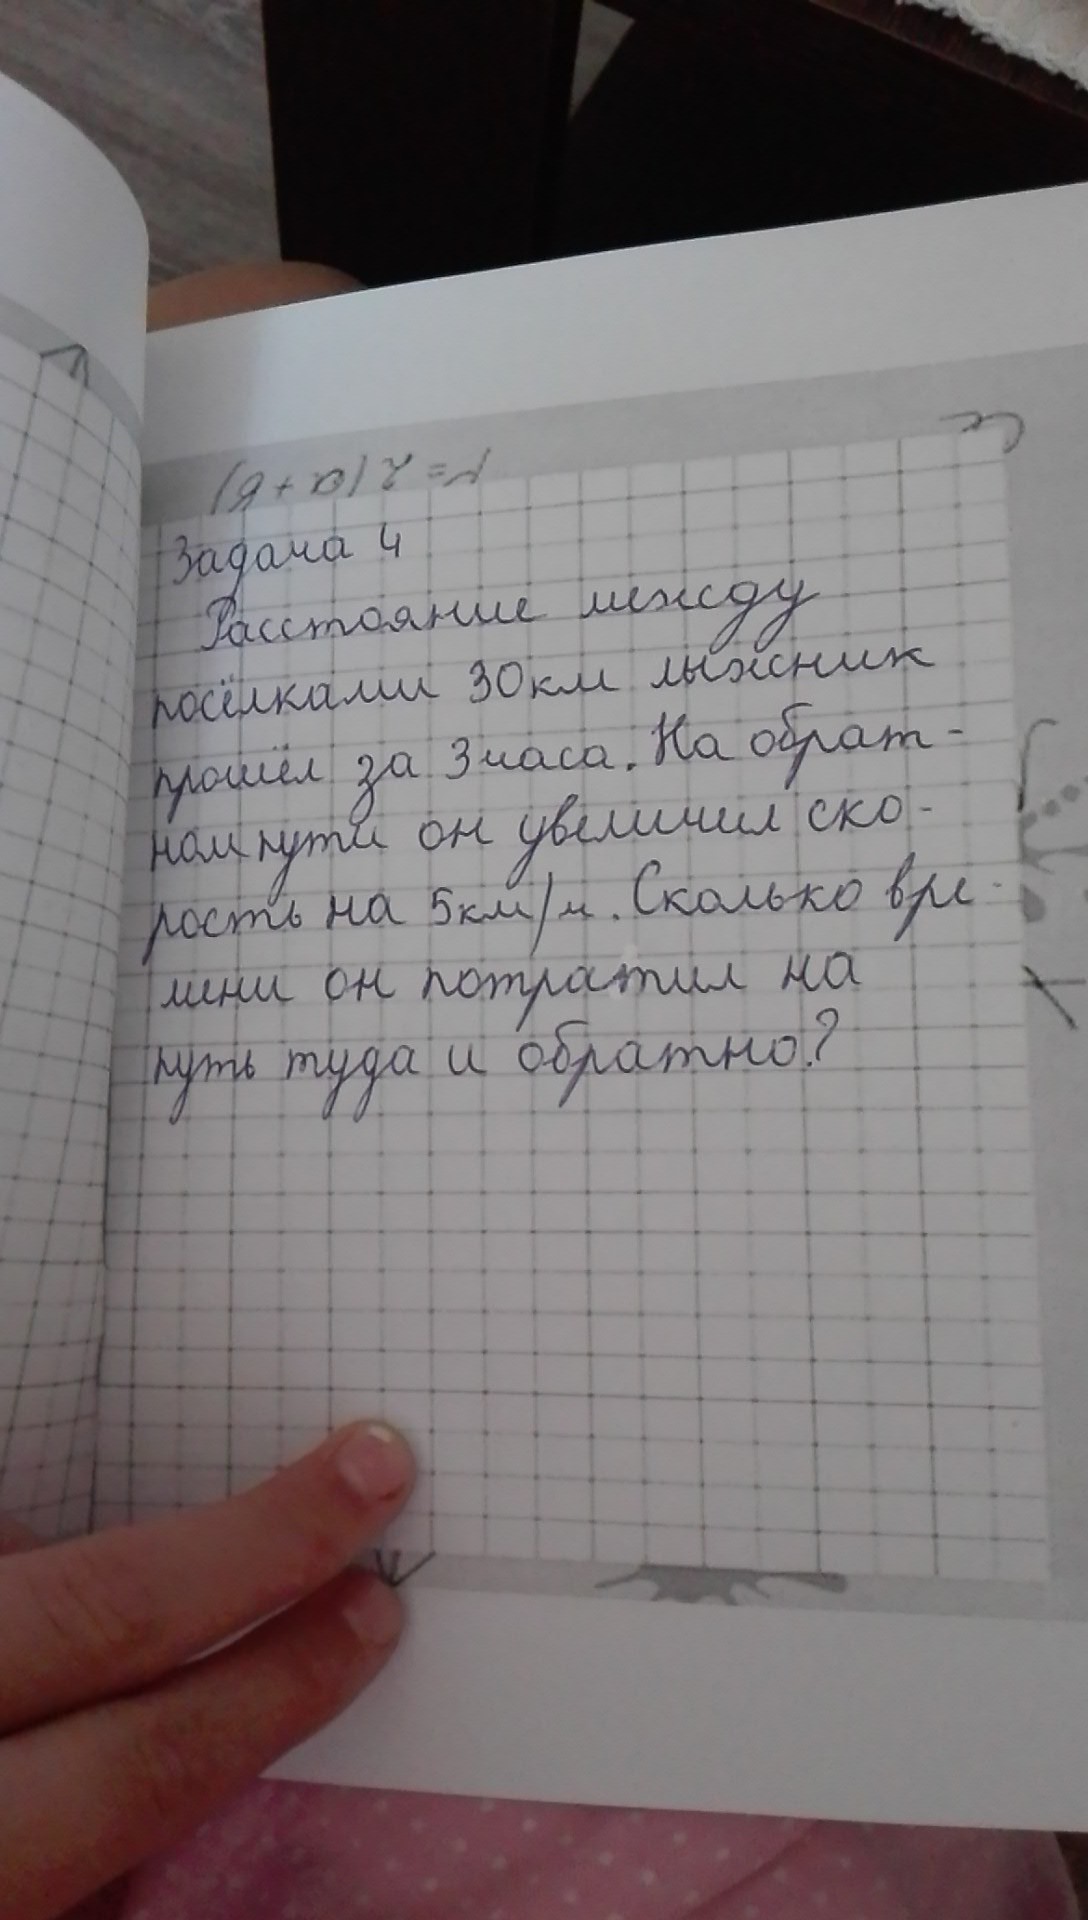 P = 2(a + b)
Задача 4
Расстояние между
посёлками 30км лыжник
прошёл за 3 часа. На обрат-
ном пути он увеличил ско-
рость на 5км/ч. Сколько вре-
мени он потратил на
путь туда и обратно?